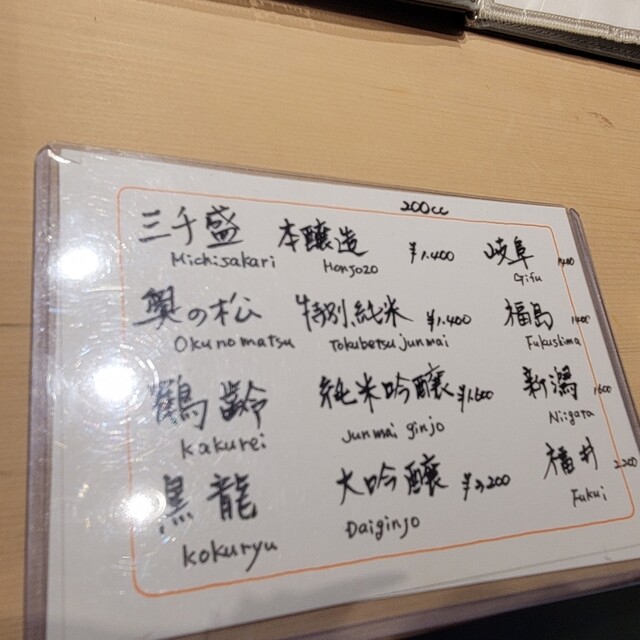 200cc
三千盛 本醸造 ¥1.400 岐阜 1400
Michisakari Honjozo Gifu
奥の松 特別純米 ¥1.400 福島 1400
Okunomatsu Tokubetsu junmai Fukushima
鶴齢 純米吟醸 ¥1.600 新潟 1600
kakurei Junmai ginjo Niigata
黒龍 大吟醸 福井
kokuryu Daiginjo Fukui